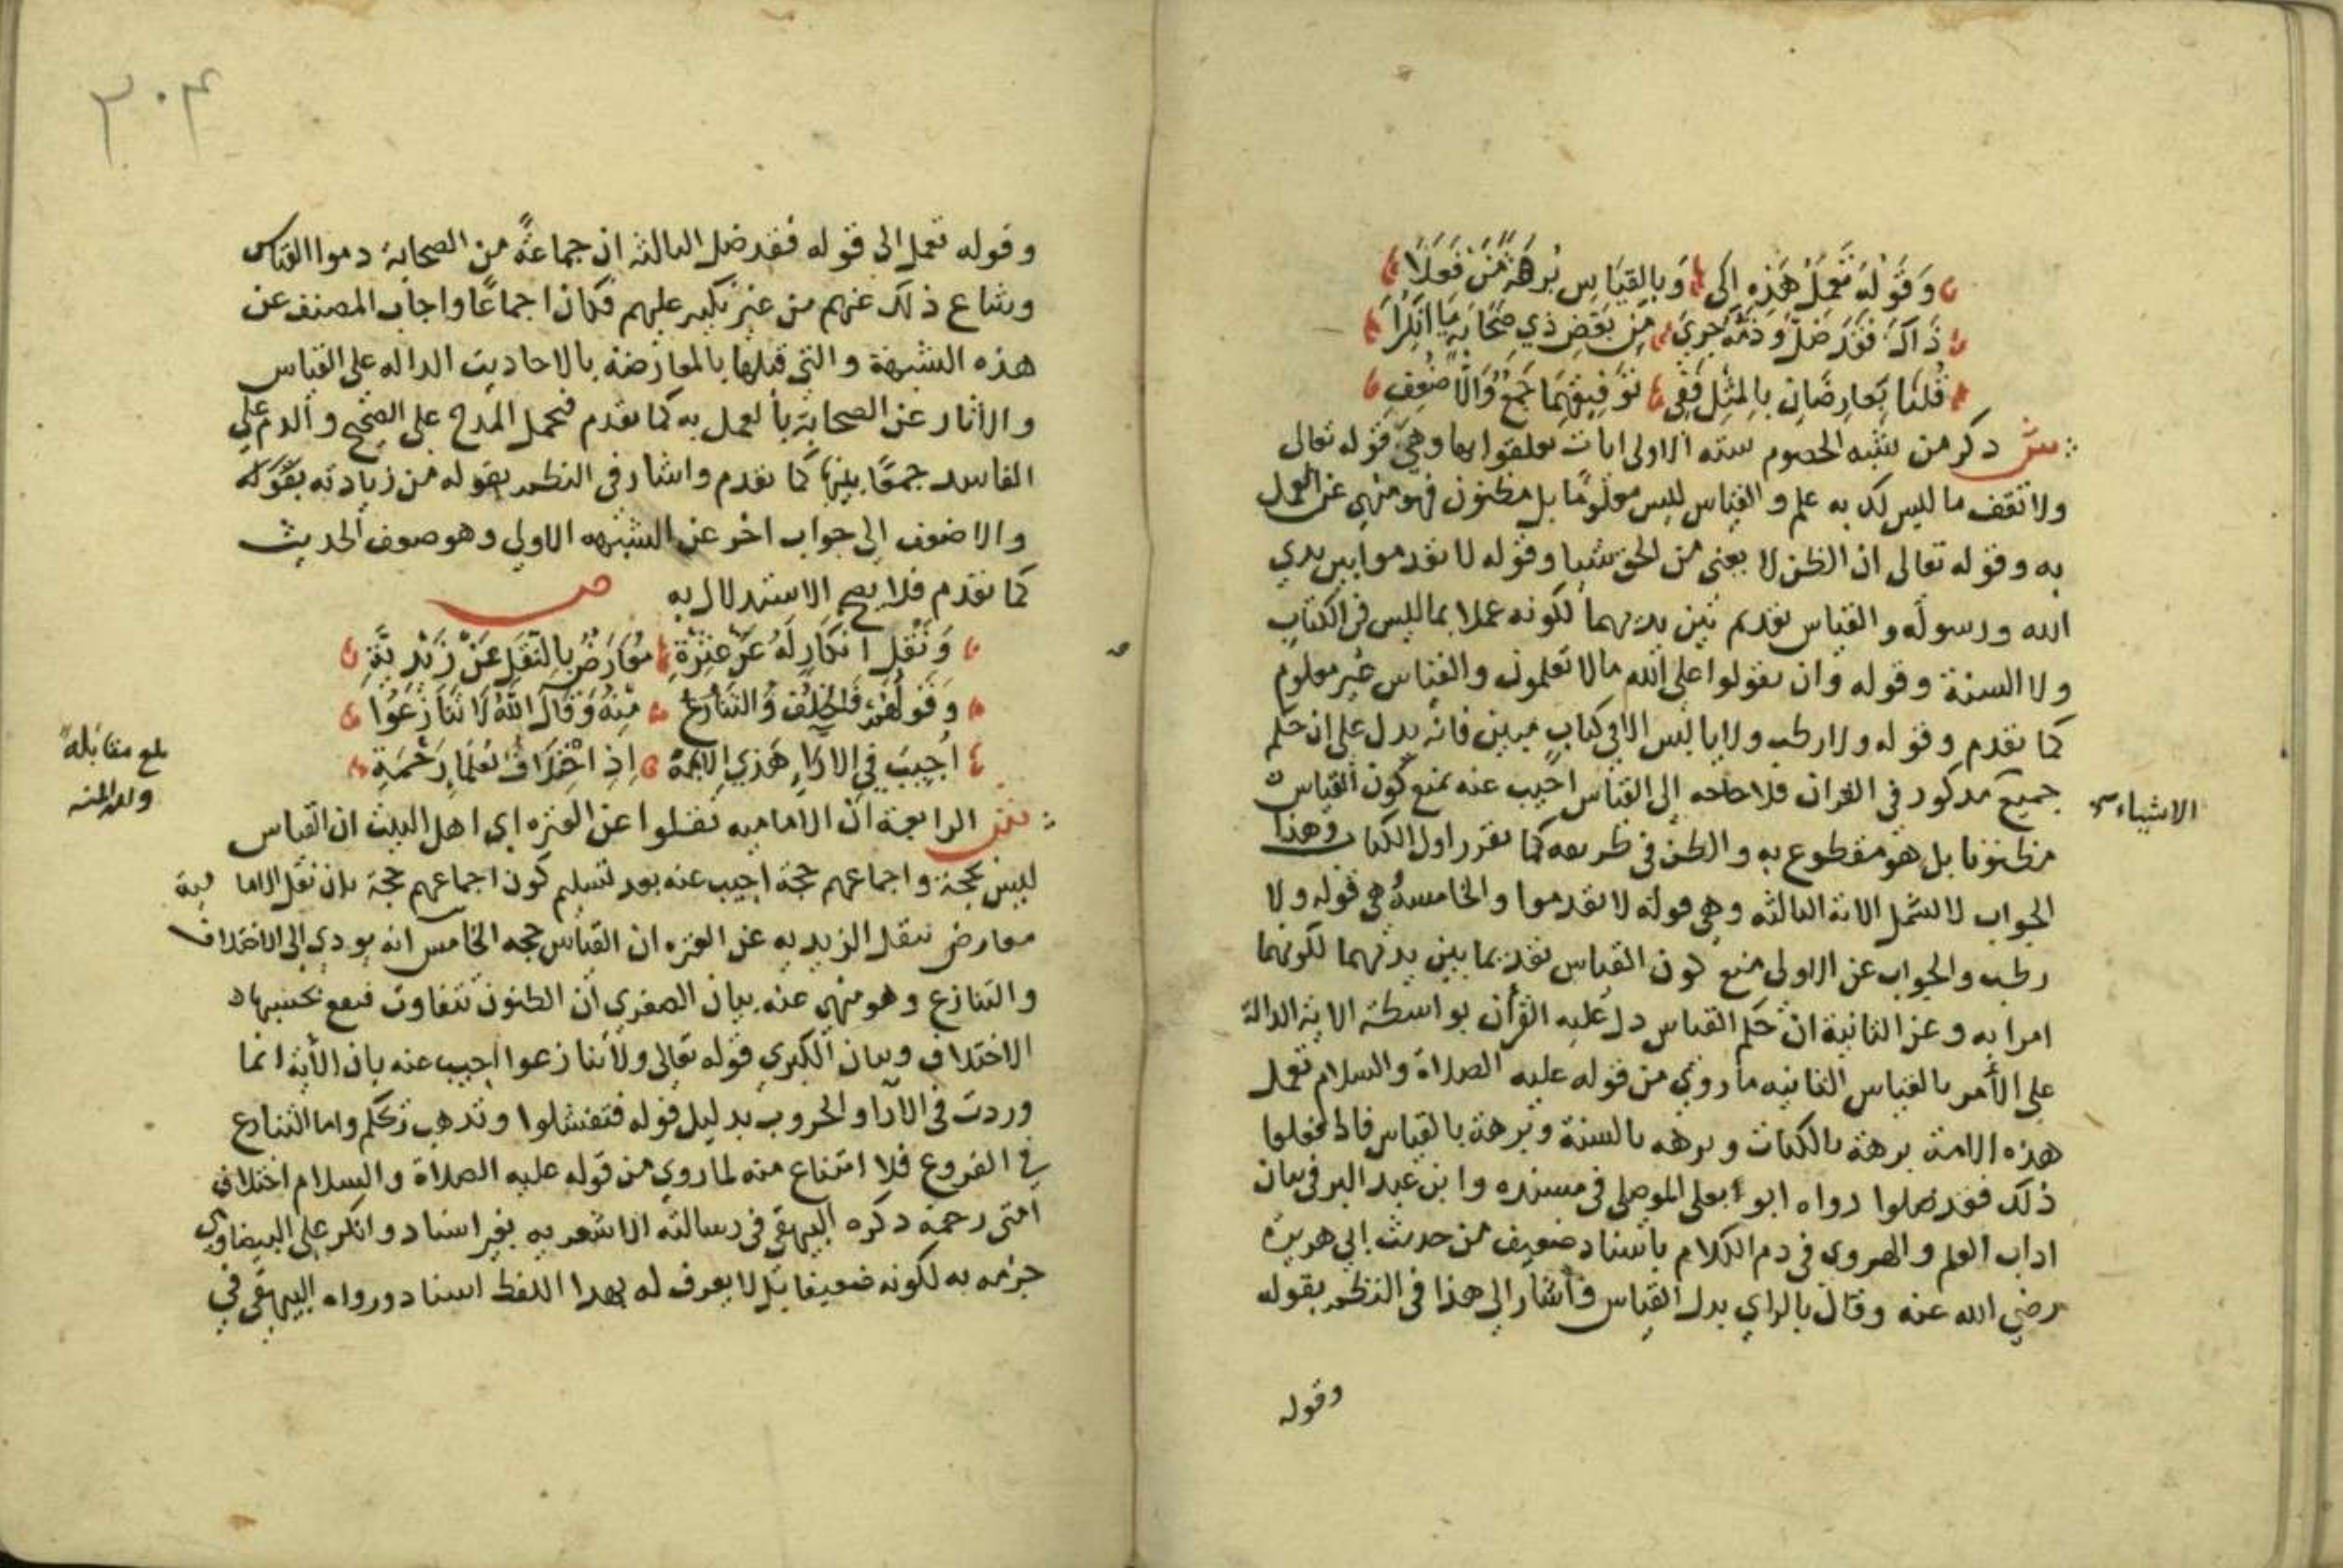 وَقَوْلُهُ تَعْمَلُ هَذِهِ إِلَى وَبِالقِيَاسِ بُرْهَةً مَنْ فَعَلَا
ذَاكَ فَقَدْ ضَلَّ وَذَمُّهُ جَرَى مِنْ بَعْضِ ذِي صَحَابَةٍ مَا أُنْكِرَا
قُلْنَا يُعَارِضَانِ بِالمِثْلِ فَفِي تَوْفِيقِهِمَا جَمْعٌ وَالأَضْعُفِ
ش ذكر من شبه الخصوم سته الاولى ايات تعلقوا بها وهي قوله تعالى
ولا تقف ما ليس لك به علم والقياس ليس معلومًا بل مظنون فهو منهي عن العمل
به وقوله تعالى ان الظن لا يغني من الحق شيا وقوله لا تقدموا بين يدي
الله ورسوله والقياس تقديم بين يديهما لكونه عملا بما ليس في الكتاب
ولا السنة وقوله وان تقولوا على الله مالا تعلمون والقياس غير معلوم
كما تقدم وقوله ولا رطب ولا يابس الا في كتاب مبين فانه يدل على ان حكم
جميع مذكور في القران فلا حاجه الى القياس اجيب عنه بمنع كون القياس
الاشياء
مظنونا بل هو مقطوع به والظن في طريقه كما تقرر اول الكتاب وهذا
الجواب لا يشمل الاية الثالثه وهي قوله لا تقدموا والخامسة هي قوله ولا
رطب والجواب عن الاولى منع كون القياس تقديما بين يديهما لكونهما
امرا به وعن الثانية ان حكم القياس دل عليه القرأن بواسطة الاية الدالة
على الأمر بالقياس الثانيه ما روي من قوله عليه الصلاة والسلام تعمل
هذه الامة برهة بالكتاب وبرهه بالسنة وبرهة بالقياس فاذا فعلوا
ذلك فقد ضلوا رواه ابو يعلى الموصلي في مسنده وابن عبد البر في بيان
اداب العلم والهروى في ذم الكلام باسناد ضعيف من حديث ابي هريرة
رضي الله عنه وقال بالراي بدل القياس وأشار الى هذا في النظم بقوله
وقوله
٣٠٤
وقوله تعمل الى قوله فقد ضل الثالثه ان جماعةً من الصحابة ذموا القياس
وشاع ذلك عنهم من غير نكير عليهم فكان اجماعًا واجاب المصنف عن
هذه الشبهة والتي قبلها بالمعارضة بالاحاديث الداله على القياس
والأثار عن الصحابة بالعمل به كما تقدم فيحمل المدح على الصحيح والذم على
الفاسد جمعًا بينهما كما تقدم واشار في النظم بقوله من زيادته بقوله
والاضعف الى جواب اخر عن الشبهه الاولى وهو ضعف الحديث
كما تقدم فلا يصح الاستدلال به ص
وَنَقْلُ انْكَارٍ لَهُ عَنْ عِتْرَةِ مُعَارَضٌ بِالنَّقْلِ عَنْ زَيْدِيَّةِ
وَقَوْلُهُمْ فَالخُلْفُ وَالتَّنَازُعُ مِنْهُ وَقَالَ اللهُ لَا تَنَازَعُوا
أُجِيبَ فِي الآرَاءِ هَذِي الآيَةُ إِذِ اخْتِلَافُ العُلَمَا رَحْمَةٌ
ش الرابعة ان الامامية نقلوا عن العتره اي اهل البيت ان القياس
ليس بحجة واجماعهم حجة اجيب عنه بعد تسليم كون اجماعهم حجة بان نقل الامامية
معارض بنقل الزيديه عن العتره ان القياس حجه الخامس انه يودي الى الاختلاف
والتنازع وهو منهي عنه بيان الصغرى ان الظنون تتفاوت فيقع بحسبها
الاختلاف وبيان الكبرى قوله تعالى ولا تنازعوا اجيب عنه بان الأية انما
وردت في الآرا والحروب بدليل قوله فتفشلوا وتذهب ريحكم واما التنازع
في الفروع فلا امتناع منه لما روي من قوله عليه الصلاة والسلام اختلاف
امتى رحمة ذكره البيهقي في رسالته الاشعريه بغير اسناد وانكر على البيضاوي
جزمه به لكونه ضعيفا بل لا يعرف له بهذا اللفظ اسناد ورواه البيهقي في
بلغ مقابلة
ولله المنه